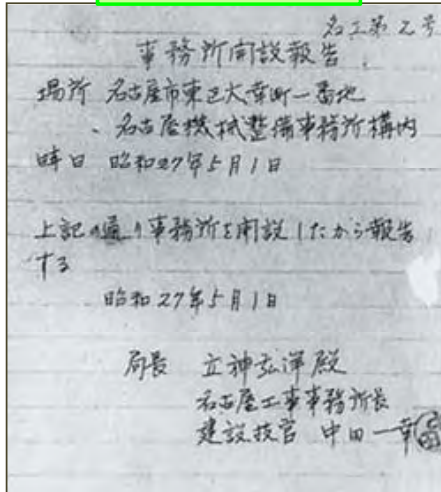 名工第2号
事務所開設報告
場所 名古屋市東区大幸町一番地
、名古屋機械整備事務所構内
時日 昭和27年5月1日
上記の通り事務所を開設したから報告
する
昭和27年5月1日
局長 立神弘洋殿
名古屋工事事務所長
建設技官 中田一幸